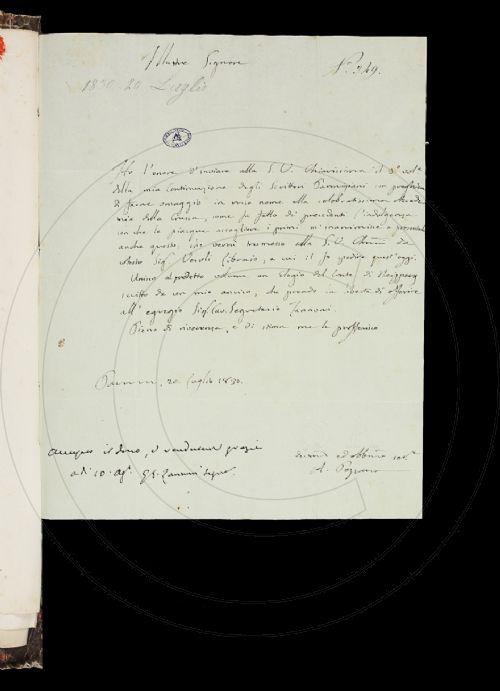 Illustre Signore
N.° 349.
1830. 20 Luglio
Ho l'onore d'inviare alla S. V. Chiarissima il 3° vol.
della mia Continuazione degli Scrittori Parmigiani con preghiera
di farne omaggio in mio nome alla celebratissima Accade
mia della Crusca, come fu fatto di precedenti. L'indulgenza
con che le piacque accogliere i primi m'inanimisce a presentarle
anche questo, che verrà trasmesso alla S. V. da
Sig. Libraio, a cui il fo spedire quest'oggi.
Unisco al predetto volume un Elogio del Conte di Neipperg
scritto da un mio amico, che prendo la libertà di offerire
all'egregio Sig. Cav. Segretario Zannoni.
Pieno di riverenza, e di stima me le professo
Parma, 20 Luglio 1830.
Accusato il dono, e rendute grazie
a dì 10. Ag. G. B. Zannoni Segret.
ed obb.mo
A. Pezzana